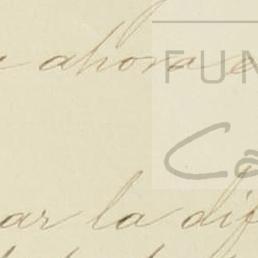 ahora
FUN
Ca
ar la dif